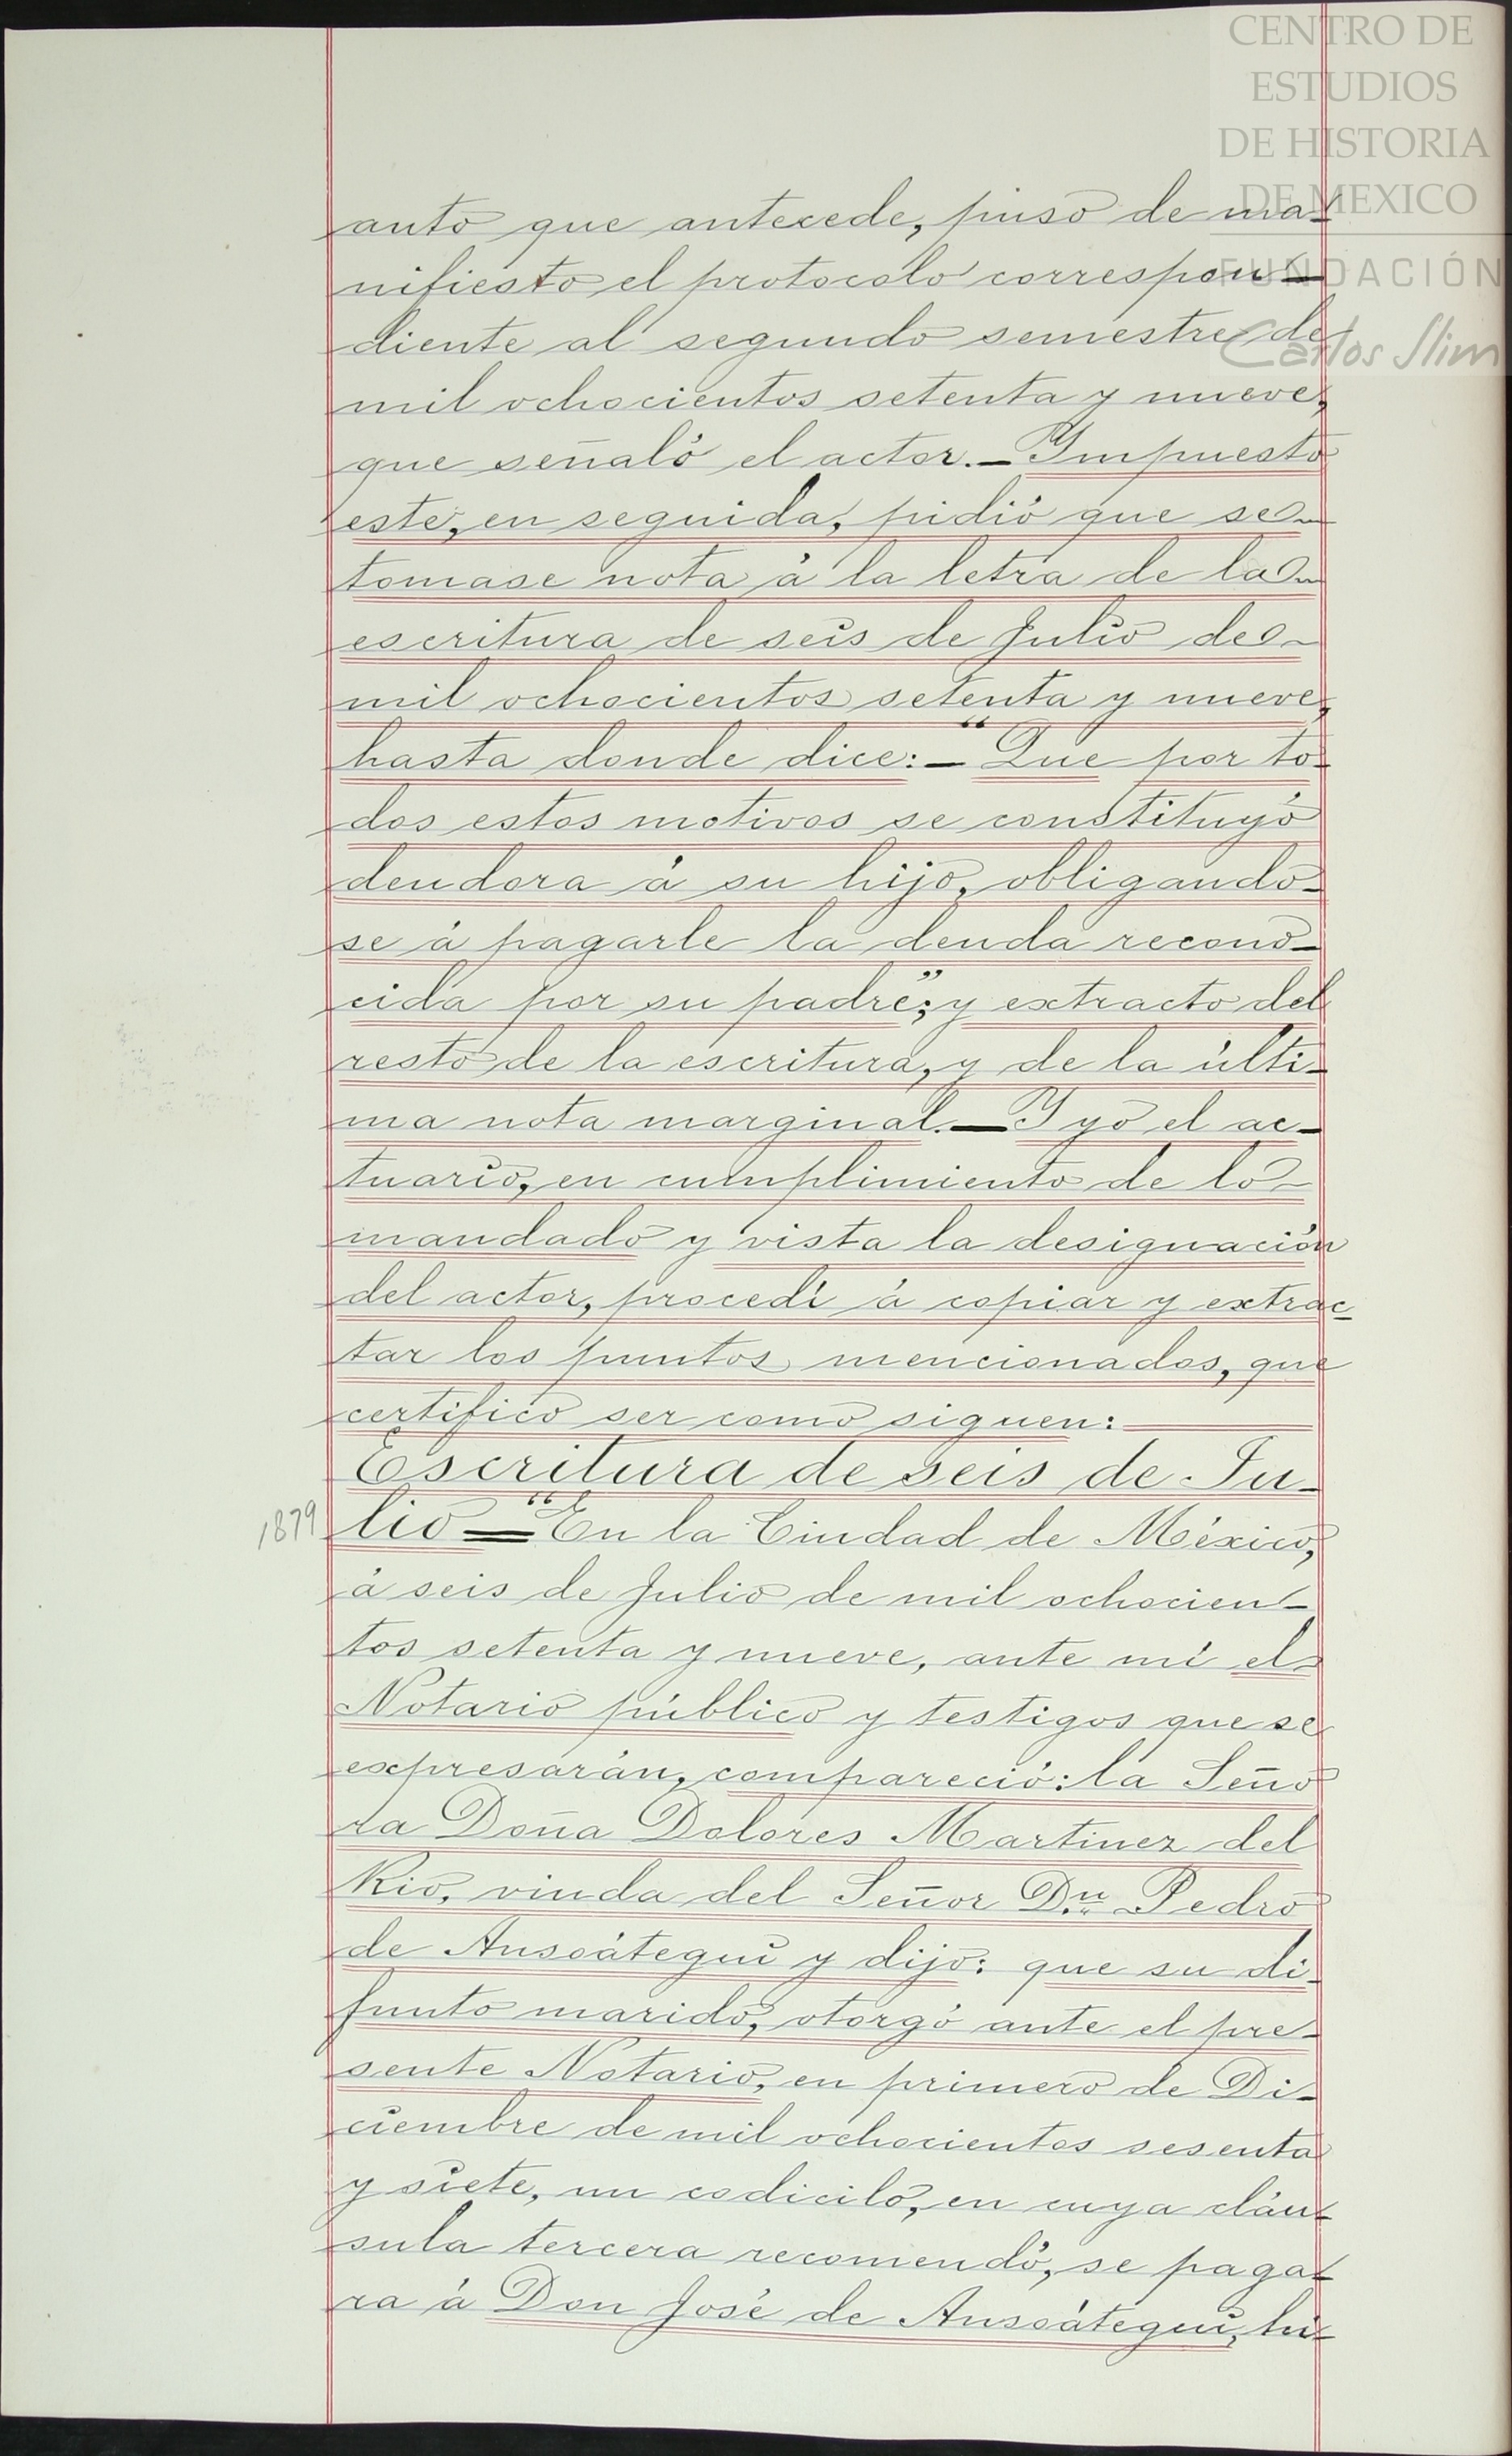 CENTRO DE
ESTUDIOS
DE HISTORIA
DE MEXICO
FUNDACIÓN
Carlos Slim
auto que antecede, puso de ma-
nifiesto el protocolo correspon-
diente al segundo semestre de
mil ochocientos setenta y nueve,
que señaló el actor.—Impuesto
este, en seguida, pidió que se
tomase nota á la letra de la
escritura de seis de Julio de
mil ochocientos setenta y nueve,
hasta donde dice:—"Que por to-
dos estos motivos se constituyó
deudora á su hijo, obligando-
se á pagarle la deuda recono-
cida por su padre"; y extracto del
resto de la escritura, y de la últi-
ma nota marginal.—Y yo el ac-
tuario, en cumplimiento de lo
mandado y vista la designación
del actor, procedí á copiar y extrac-
tar los puntos mencionados, que
certifico ser como siguen:
Escritura de seis de Ju-
1879 lio—"En la Ciudad de México,
á seis de Julio de mil ochocien-
tos setenta y nueve, ante mí el
Notario público y testigos que se
expresarán, compareció: la Seño
ra Doña Dolores Martinez del
Rio, viuda del Señor Dn. Pedro
de Ansoátegui y dijo: que su di-
funto marido, otorgó ante el pre-
sente Notario, en primero de Di-
ciembre de mil ochocientos sesenta
y siete, un codicilo, en cuya cláu-
sula tercera recomendó, se paga-
ra á Don José de Ansoátegui, hi-